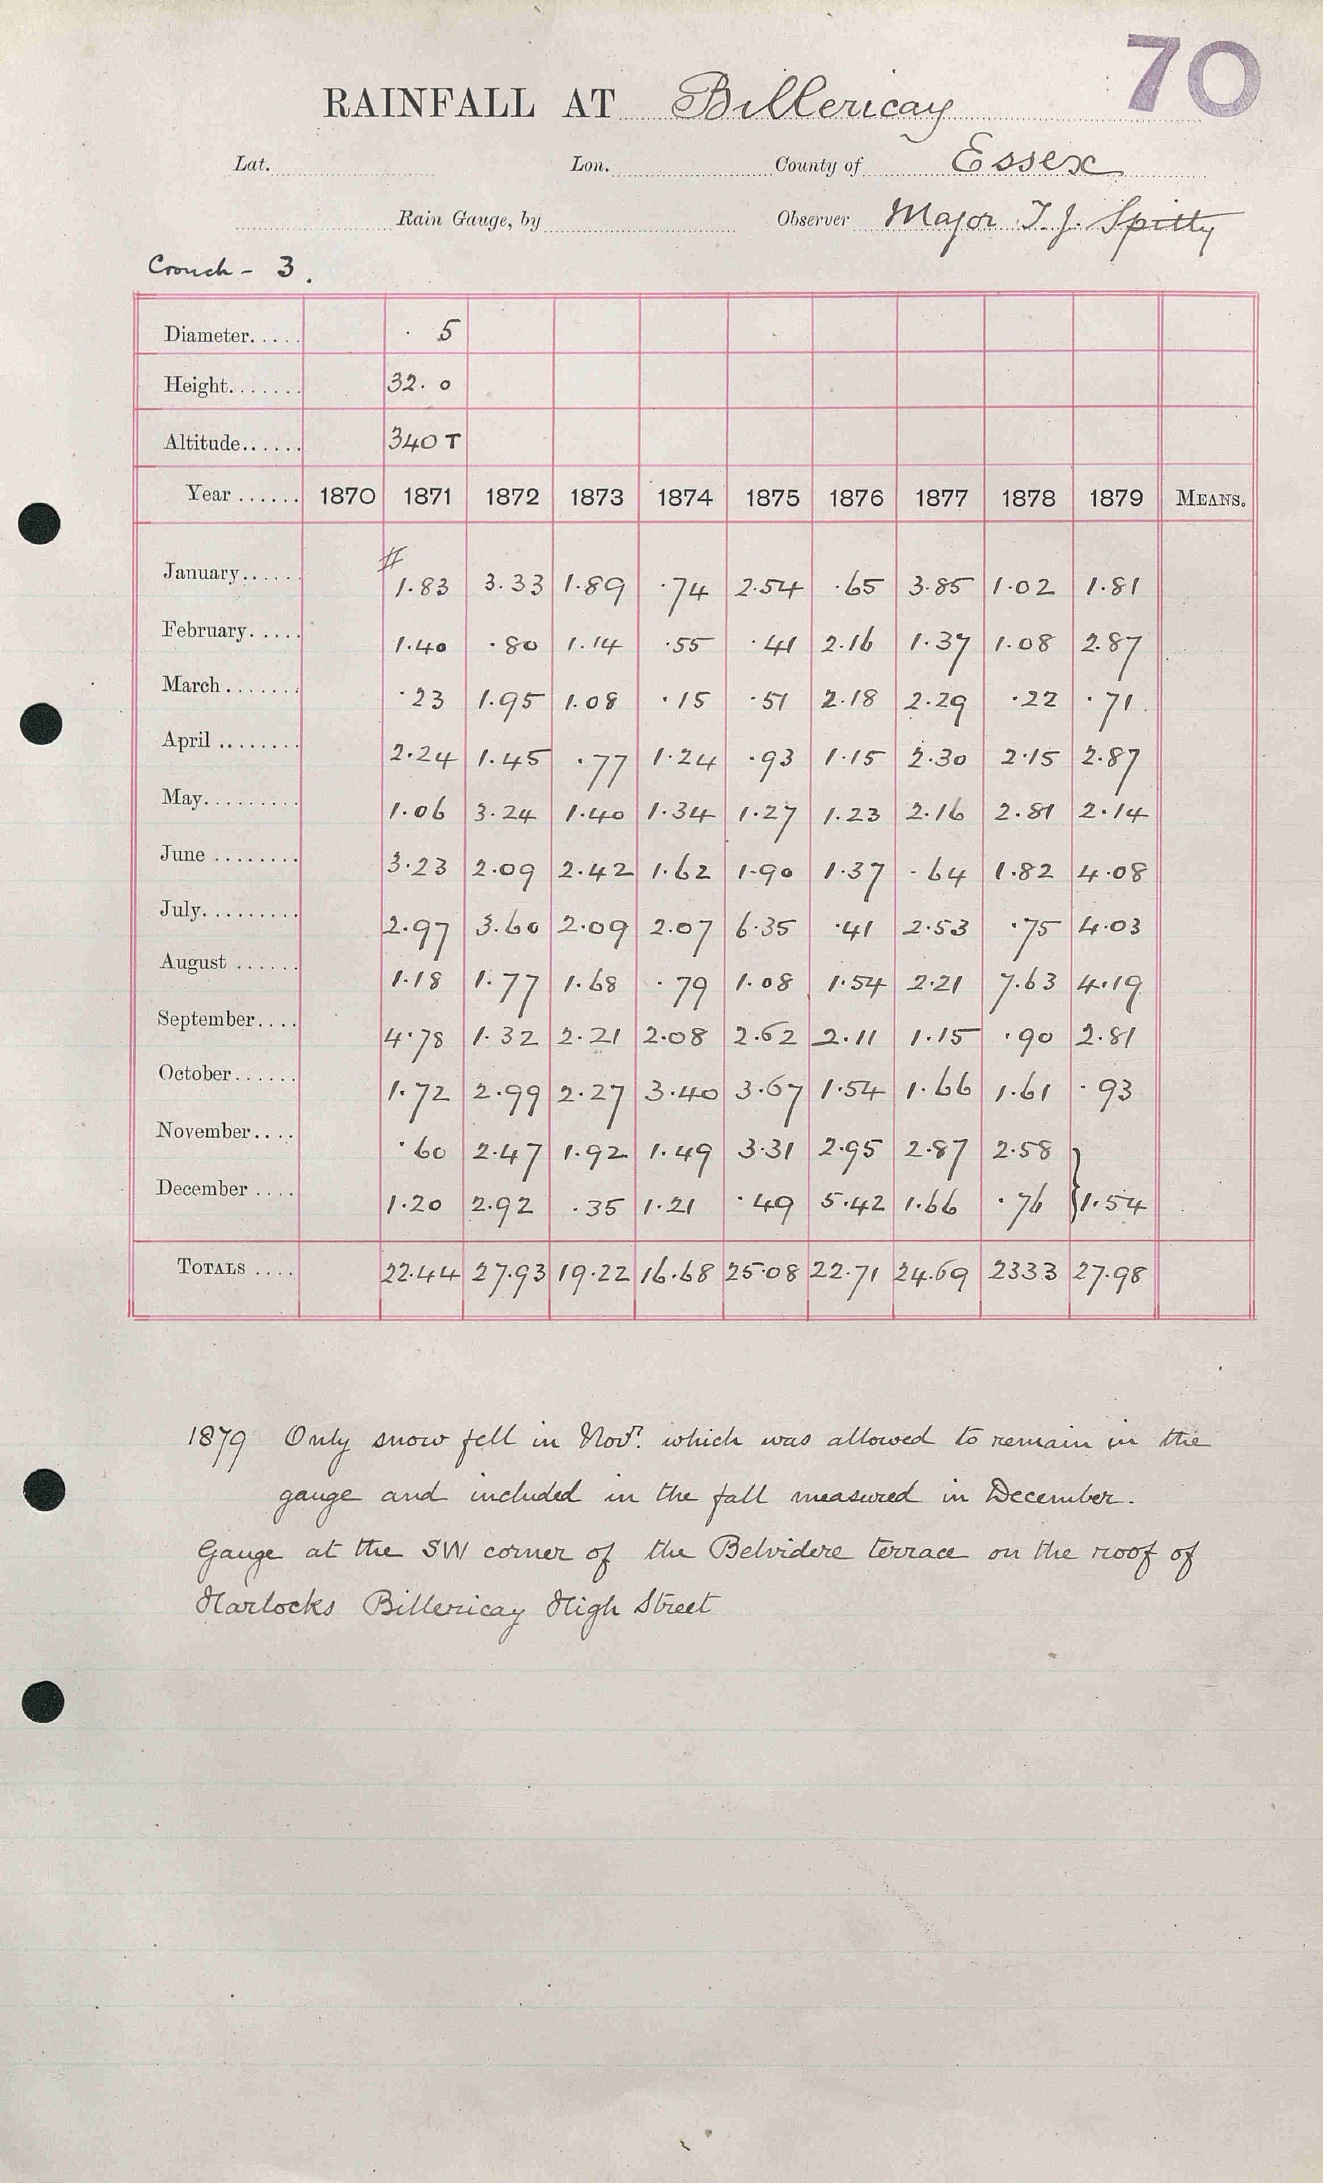 70
RAINFALL AT Billericay
Lat. Lon. County of Essex
Rain Gauge, by Observer Major T. J. Spitty
Crouch - 3.
Diameter..... 5
Height....... 32. 0
Altitude...... 340 T
Year ...... 1870 1871 1872 1873 1874 1875 1876 1877 1878 1879 MEANS.
#
January...... 1.83 3.33 1.89 .74 2.54 .65 3.85 1.02 1.81
February..... 1.40 .80 1.14 .55 .41 2.16 1.37 1.08 2.87
March....... .23 1.95 1.08 .15 .51 2.18 2.29 .22 .71
April ........ 2.24 1.45 .77 1.24 .93 1.15 2.30 2.15 2.87
May......... 1.06 3.24 1.40 1.34 1.27 1.23 2.16 2.81 2.14
June ........ 3.23 2.09 2.42 1.62 1.90 1.37 .64 1.82 4.08
July......... 2.97 3.60 2.09 2.07 6.35 .41 2.53 .75 4.03
August ...... 1.18 1.77 1.68 .79 1.08 1.54 2.21 7.63 4.19
September.... 4.78 1.32 2.21 2.08 2.62 2.11 1.15 .90 2.81
October...... 1.72 2.99 2.27 3.40 3.67 1.54 1.66 1.61 .93
November.... .60 2.47 1.92 1.49 3.31 2.95 2.87 2.58 }
December .... 1.20 2.92 .35 1.21 .49 5.42 1.66 .76 1.54
TOTALS .... 22.44 27.93 19.22 16.68 25.08 22.71 24.69 2333 27.98
1879 Only snow fell in Novr. which was allowed to remain in the
gauge and included in the fall measured in December.
Gauge at the SW corner of the Belvidere terrace on the roof of
Harlocks Billericay High Street